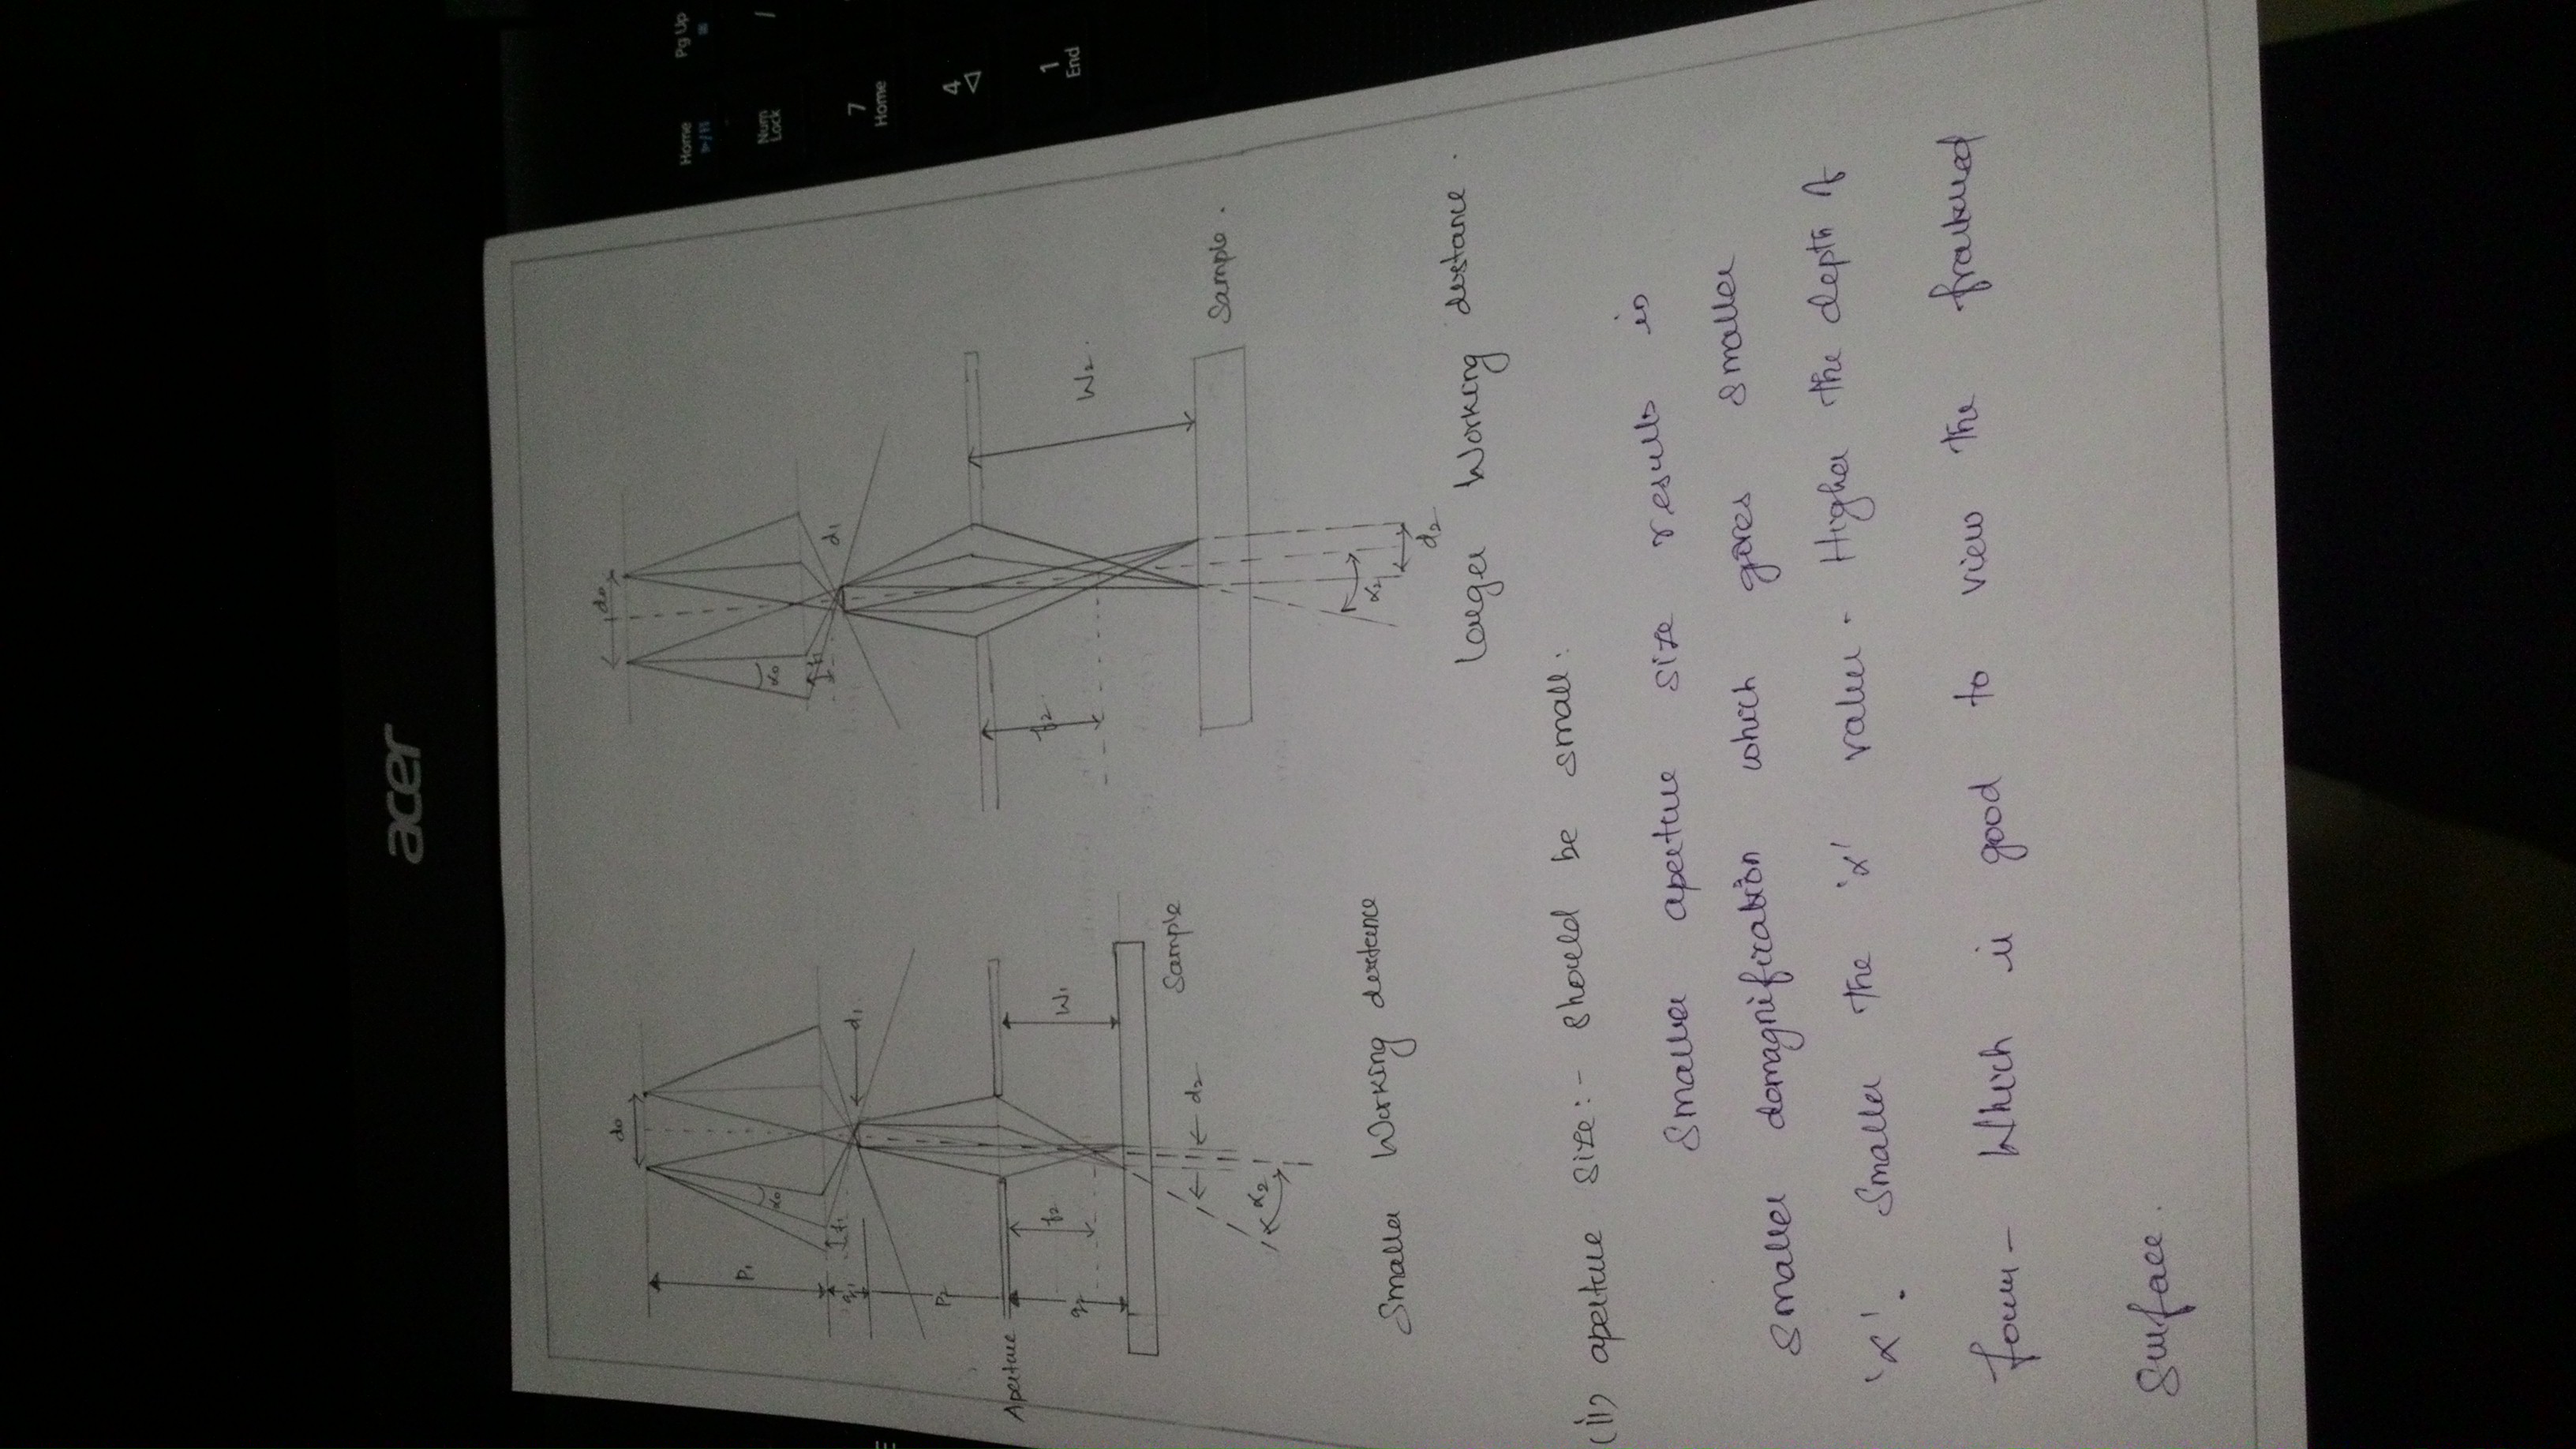 acer
Home
Pg Up
Num
Lock
/
7
Home
4
1
End
do
do
P1
αo
αo
f1
d1
d1
P2
Aperture
f2
W1
f2
W2.
q2
Sample
d2
Sample.
α2
α2
d2
Smaller Working distance
Larger Working distance.
(ii) aperture size:- should be small:
Smaller aperture size results in
smaller demagnification which gives smaller
'α'. Smaller the 'α' value. Higher the depth of
focus- Which is good to view the fractured
Surface.